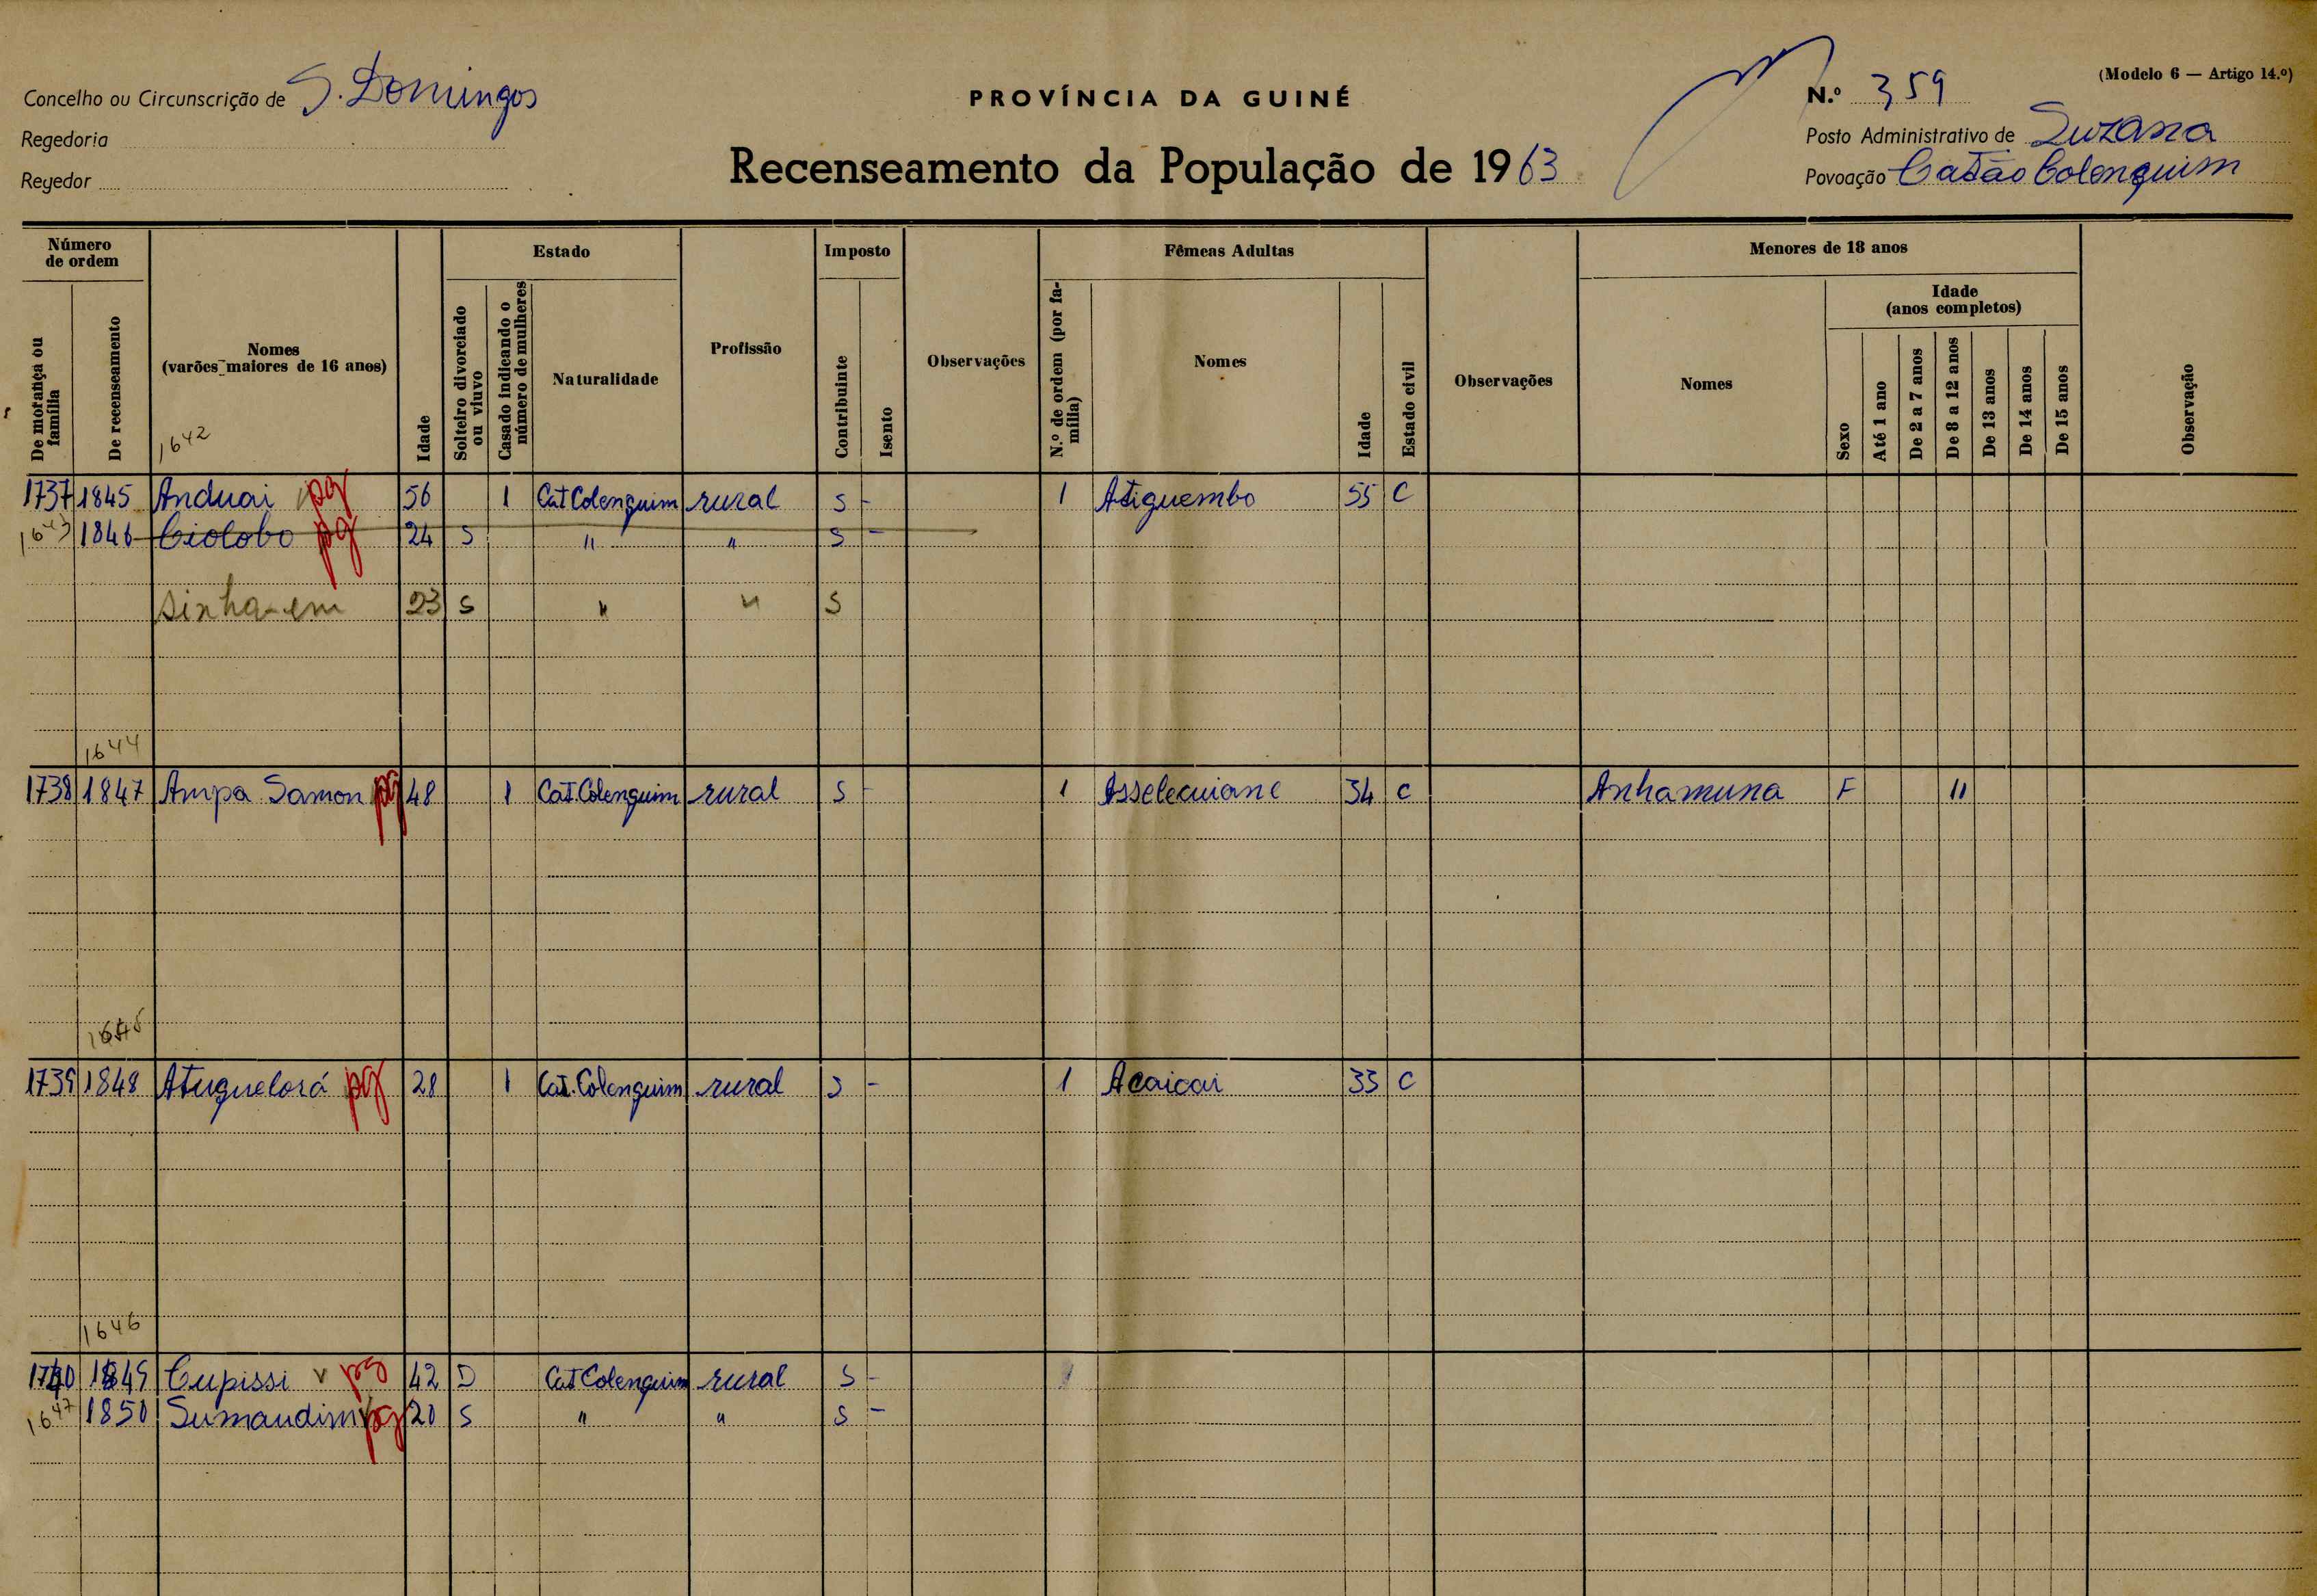 (Modelo 6 — Artigo 14.º)
Concelho ou Circunscrição de S. Domingos
PROVÍNCIA DA GUINÉ
N.º 359
Regedoria
Posto Administrativo de Suzana
Regedor
Recenseamento da População de 1963
Povoação Catão Colenquim
Número de ordem
De morança ou família
De recenseamento
Nomes
(varões maiores de 16 anos)
1642
Idade
Estado
Solteiro divorciado ou viuvo
Casado indicando o número de mulheres
Naturalidade
Profissão
Imposto
Contribuinte
Isento
Observações
Fêmeas Adultas
N.º de ordem (por família)
Nomes
Idade
Estado civil
Observações
Menores de 18 anos
Nomes
Sexo
Idade
(anos completos)
Até 1 ano
De 2 a 7 anos
De 8 a 12 anos
De 13 anos
De 14 anos
De 15 anos
Observação
1737 1845 Anduai pg 56 1 Cat Colenquim rural S - 1 Atiguembo 55 C
1643 1846 Ciolobo pg 24 S " " S -
Sinha-em 23 S " " S
1644
1738 1847 Ampa Samon pg 48 1 Cat. Colenquim rural S - 1 Asselecuiane 34 C Anhamuna F 11
1645
1739 1848 Atuguelorá pg 28 1 Cat. Colenquim rural S - 1 Acaicai 33 C
1646
1740 1849 Cupissi v pg 42 D Cat Colenquim rural S -
1647 1850 Sumaudim v pg 20 S " " S -